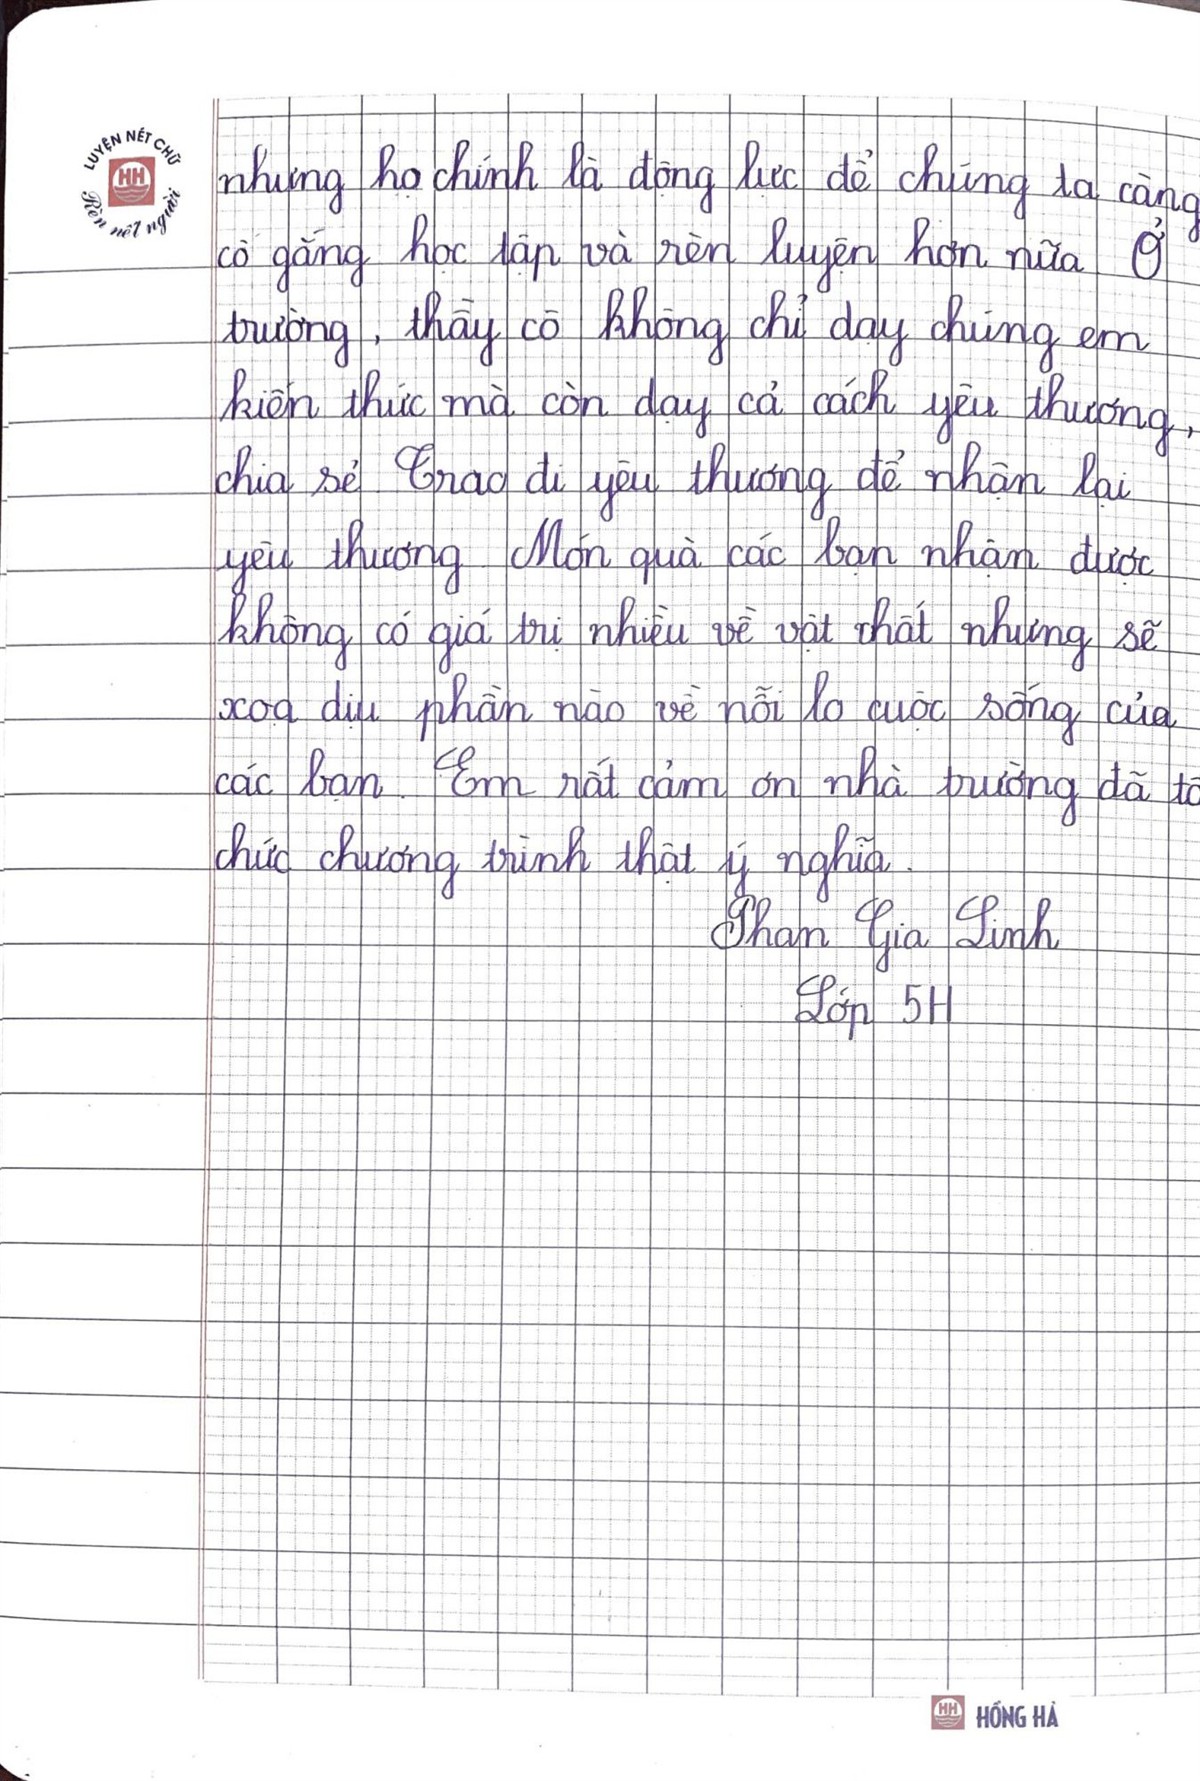 LUYỆN NÉT CHỮ
HH
Rèn nết người
nhưng họ chính là động lực để chúng ta càng
cố gắng học tập và rèn luyện hơn nữa Ở
trường, thầy cô không chỉ dạy chúng em
kiến thức mà còn dạy cả cách yêu thương,
chia sẻ Trao đi yêu thương để nhận lại
yêu thương Món quà các bạn nhận được
không có giá trị nhiều về vật chất nhưng sẽ
xoa dịu phần nào về nỗi lo cuộc sống của
các bạn. Em rất cảm ơn nhà trường đã tổ
chức chương trình thật ý nghĩa.
Phan Gia Linh
Lớp 5H
HH HỒNG HÀ